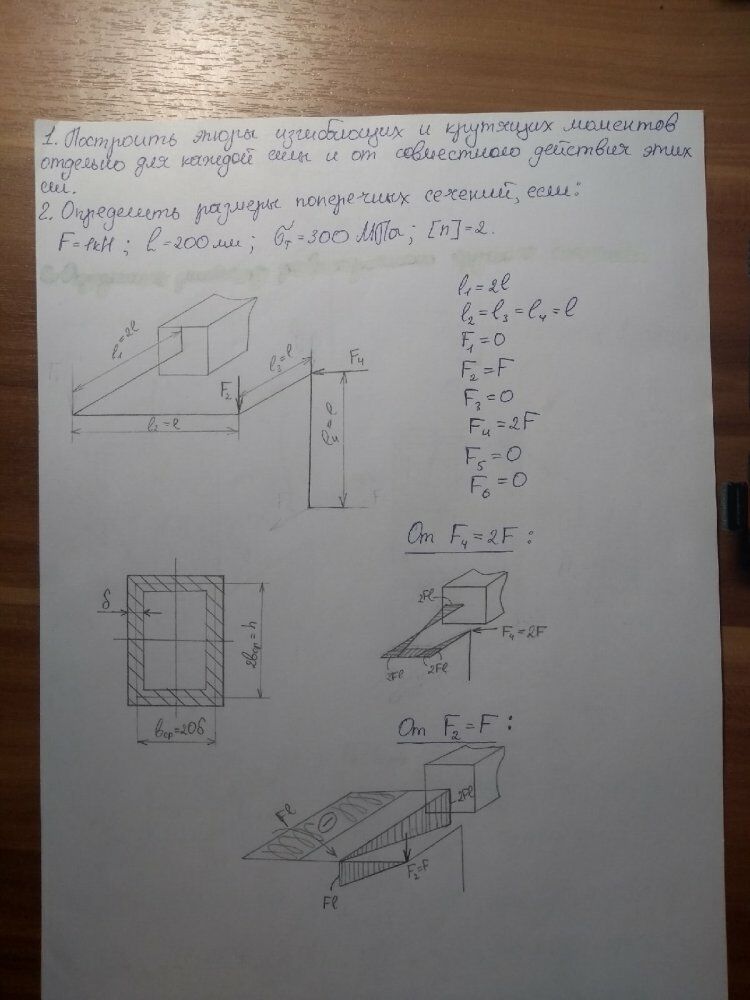 1. Построить эпюры изгибающих и крутящих моментов
отдельно для каждой силы и от совместного действия этих
сил.
2. Определить размеры поперечных сечений, если:
F=1кН; l=200мм; σт=300МПа; [n]=2.
l₁=2l
l₂=l₃=l₄=l
F₁=0
F₂=F
F₃=0
F₄=2F
F₅=0
F₆=0
l₁=2l
l₃=l
F₄
F₂
l₂=l
l₄=l
От F₄=2F:
2Fl
F₄=2F
2Fl
2Fl
δ
2bср=h
bср=20δ
От F₂=F:
2Fl
Fl
F₂=F
Fl